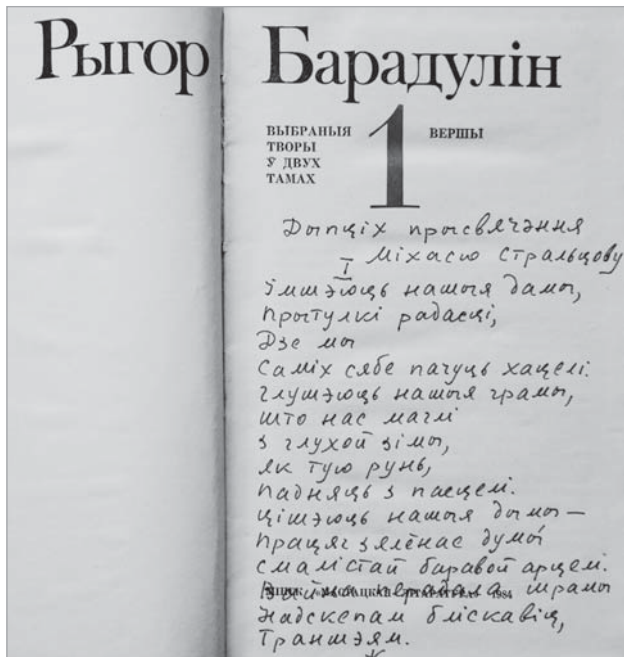 Рыгор Барадулін
ВЫБРАНЫЯ
ТВОРЫ
Ў ДВУХ
ТАМАХ
1
ВЕРШЫ
Дыпціх прысвячэння
I Міхасю Стральцову
Імшэюць нашыя дамы,
Прытулкі радасці,
Дзе мы
Саміх сябе пачуць хацелі.
Глушэюць нашыя грамы,
Што нас маглі
З глухой зімы,
Як тую рунь,
Падняць з пасцелі.
Цішэюць нашыя дымы —
Працяг зялёнае думы
Смалістай баравой арцелі.
перадала шрамы
1984
Надскепам бліскавіц,
Траншэям.